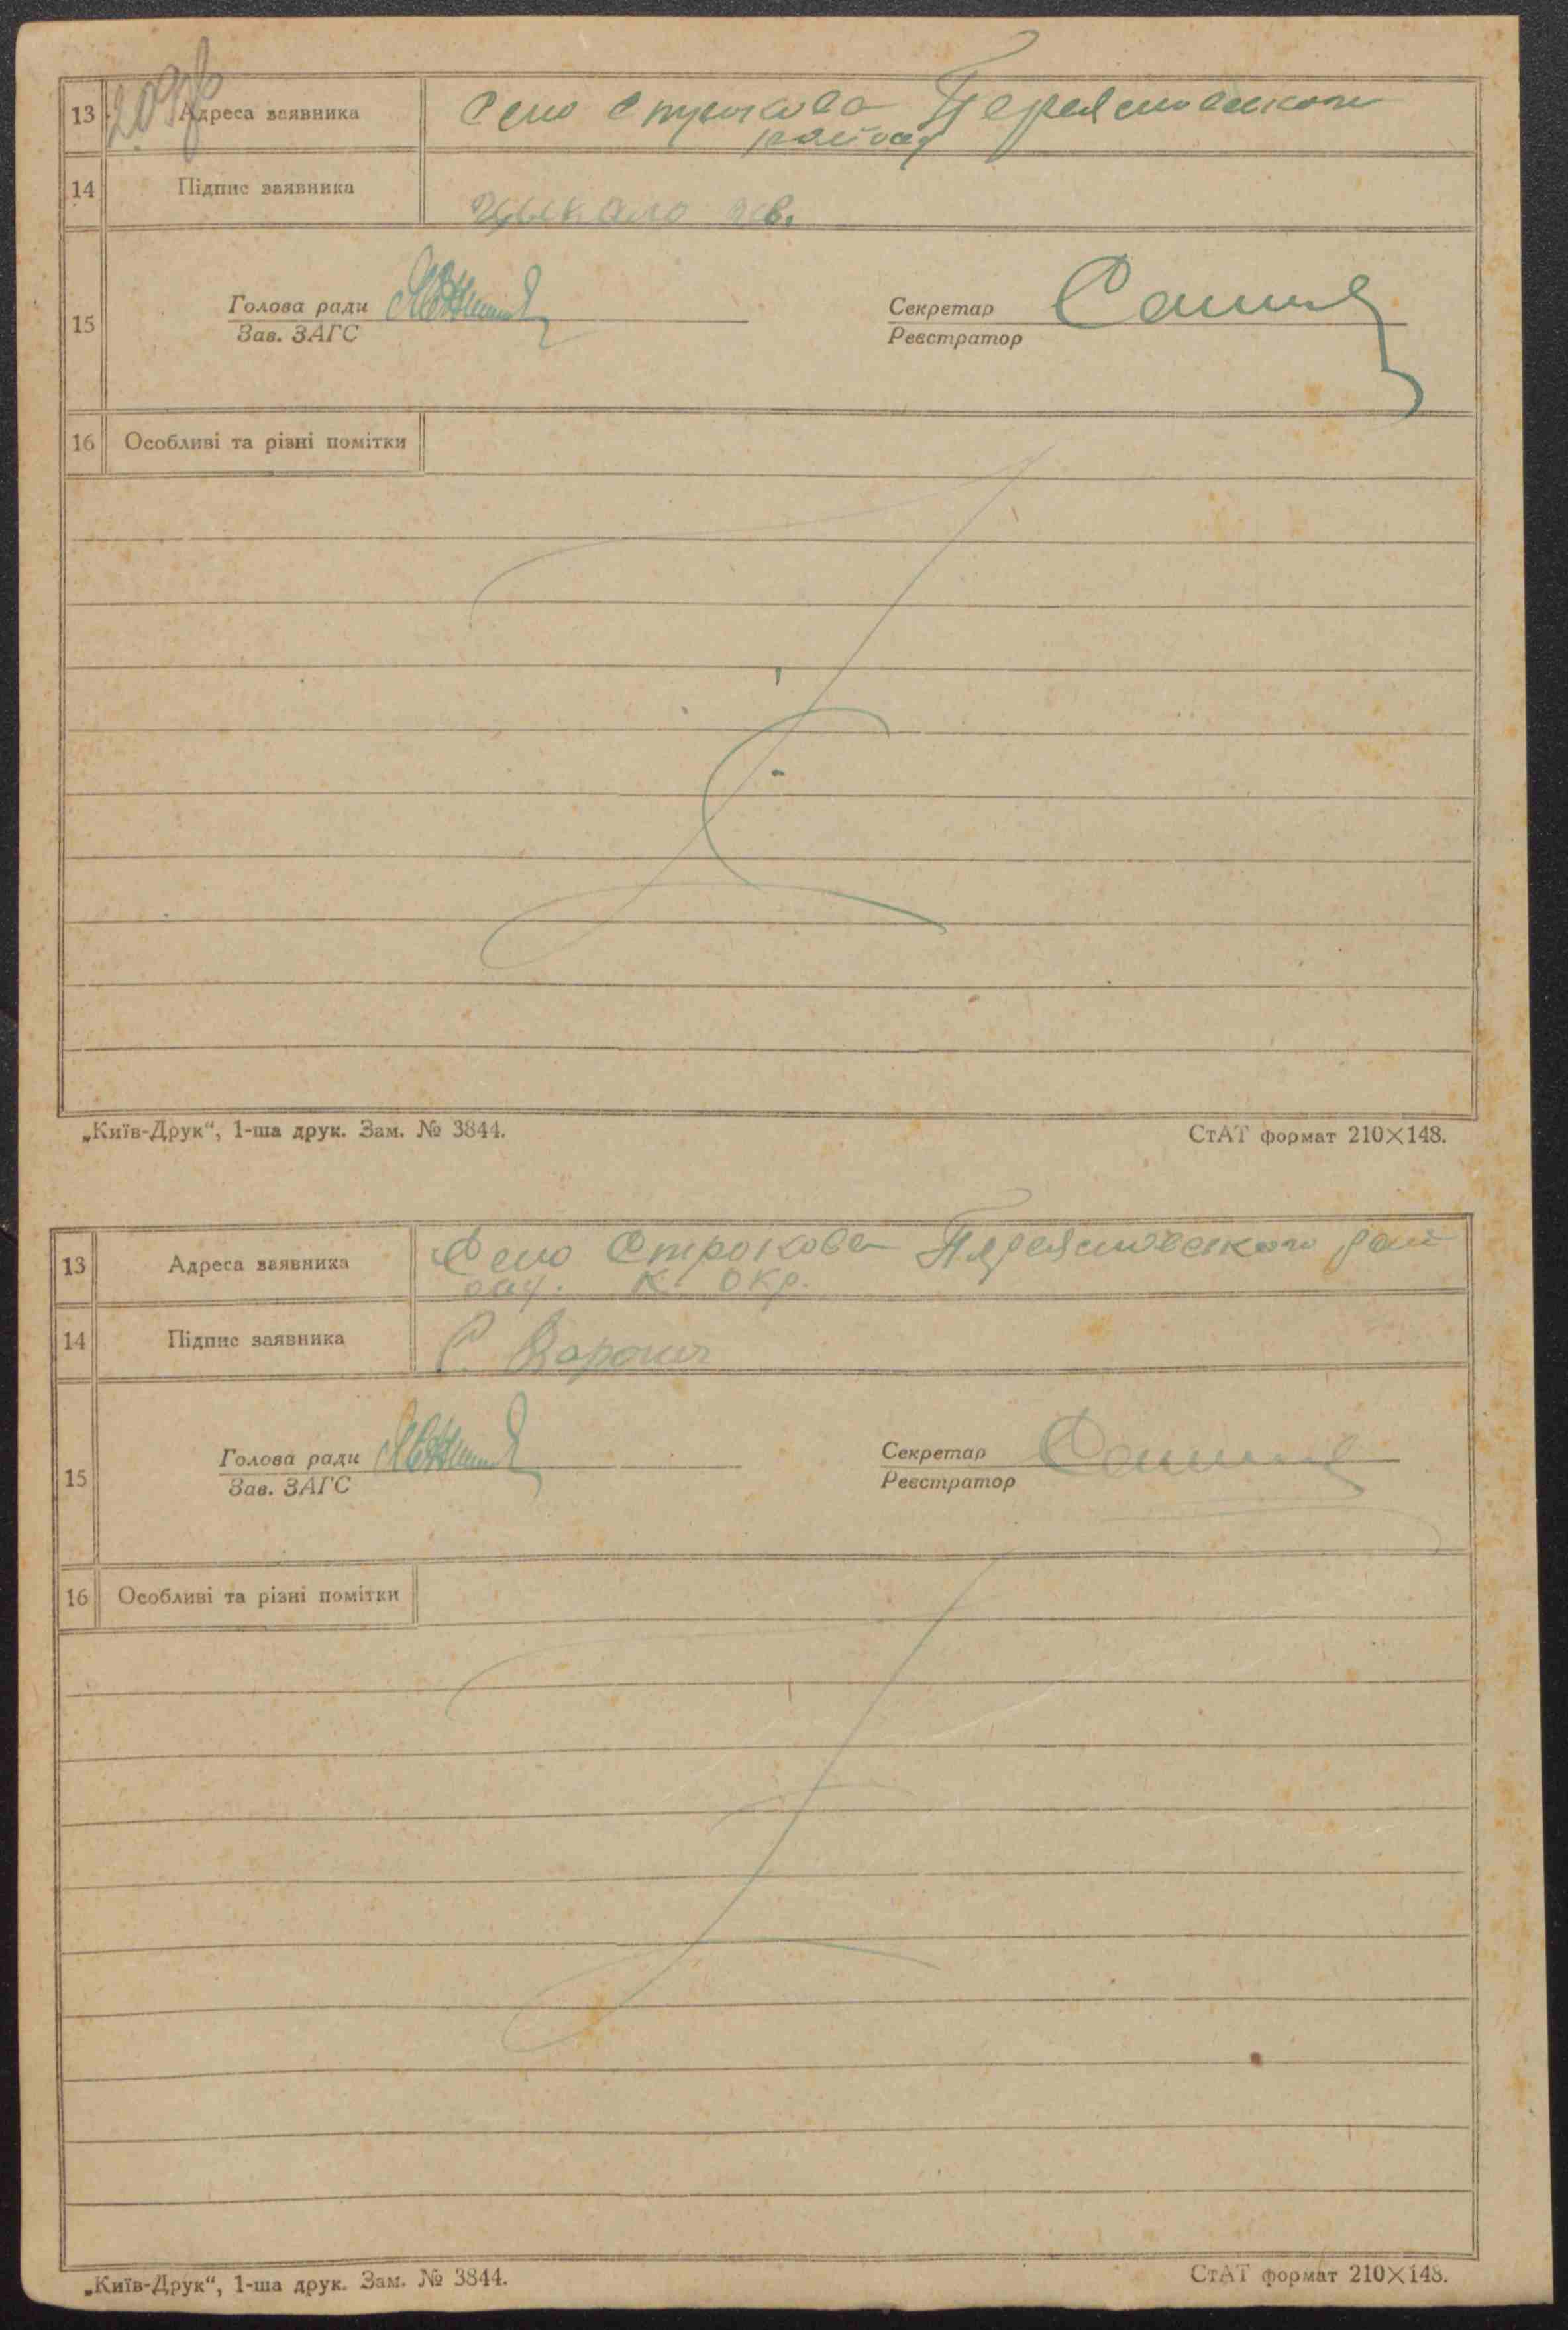 13 Адреса заявника Село Строкова Переяславського
району
14 Підпис заявника Цыкало
15 Голова ради Секретар
Зав. ЗАГС Реєстратор
16 Особливі та різні помітки
„Київ-Друк“, 1-ша друк. Зам. № 3844. СтАТ формат 210×148.
13 Адреса заявника Село Строкова Переяславського рай
ону. К. Окр.
14 Підпис заявника С.
15 Голова ради Секретар
Зав. ЗАГС Реєстратор
16 Особливі та різні помітки
„Київ-Друк“, 1-ша друк. Зам. № 3844. СтАТ формат 210×148.